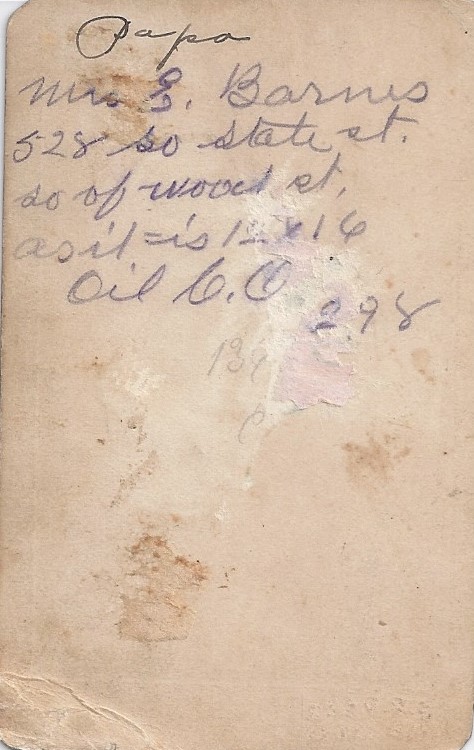 Papa
Mrs E. Barnes
528 so state st.
so of wood st.
as it = is 12 x 16
Oil C.O
298
139